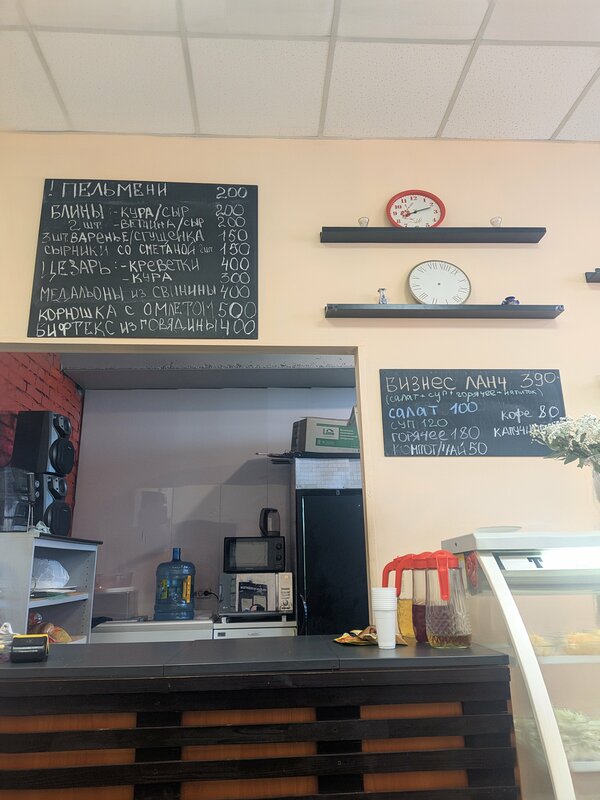 ! ПЕЛЬМЕНИ 200
БЛИНЫ:-КУРА/СЫР 200
2 шт -ВЕТЧИНА/СЫР 200
3шт ВАРЕНЬЕ/СГУЩЕНКА 150
СЫРНИКИ СО СМЕТАНОЙ 2шт 150
! ЦЕЗАРЬ:-КРЕВЕТКИ 400
-КУРА 300
МЕДАЛЬОНЫ ИЗ СВИНИНЫ 400
КОРЮШКА С ОМЛЕТОМ 500
БИФТЕКС ИЗ ГОВЯДИНЫ 400
БИЗНЕС ЛАНЧ 390-
(САЛАТ+СУП+ГОРЯЧЕЕ+НАПИТОК)
САЛАТ 100
СУП 120
ГОРЯЧЕЕ 180
КОМПОТ/ЧАЙ 50
КОФЕ 80